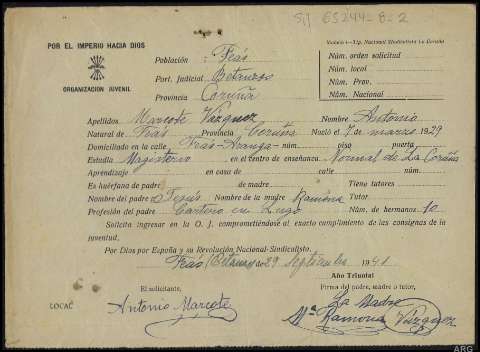 POR EL IMPERIO HACIA DIOS
ORGANIZACION JUVENIL
Modelo 1.-Tip. Nacional Sindicalista La Coruña
Población: Feás
Part. Judicial Betanzos
Provincia Coruña
Núm. orden solicitud
Núm. local
Núm. Prov.
Núm. Nacional
Apellidos Marcote Vázquez Nombre Antonio
Natural de Feás Provincia Coruña Nació el 7 de marzo 1929
Domiciliado en la calle Feás-Aranga núm. piso puerta
Estudia Magisterio en el centro de enseñanza Normal de La Coruña
Aprendizaje en casa de calle núm.
Es huérfano de padre de madre Tiene tutores
Nombre del padre Jesús Nombre de la madre Ramona Tutor
Profesión del padre Cartero en Lugo Núm. de hermanos 10
Solicita ingresar en la O. J. comprometiéndose al exacto cumplimiento de las consignas de la
juventud.
Por Dios por España y su Revolución Nacional-Sindicalista.
Feás (Betanzos) 29 Septiembre 1941
Año Triunfal
El solicitante, Firma del padre, madre o tutor,
LOCAL
Antonio Marcote
La Madre
Mª Ramona Vázquez
ARG